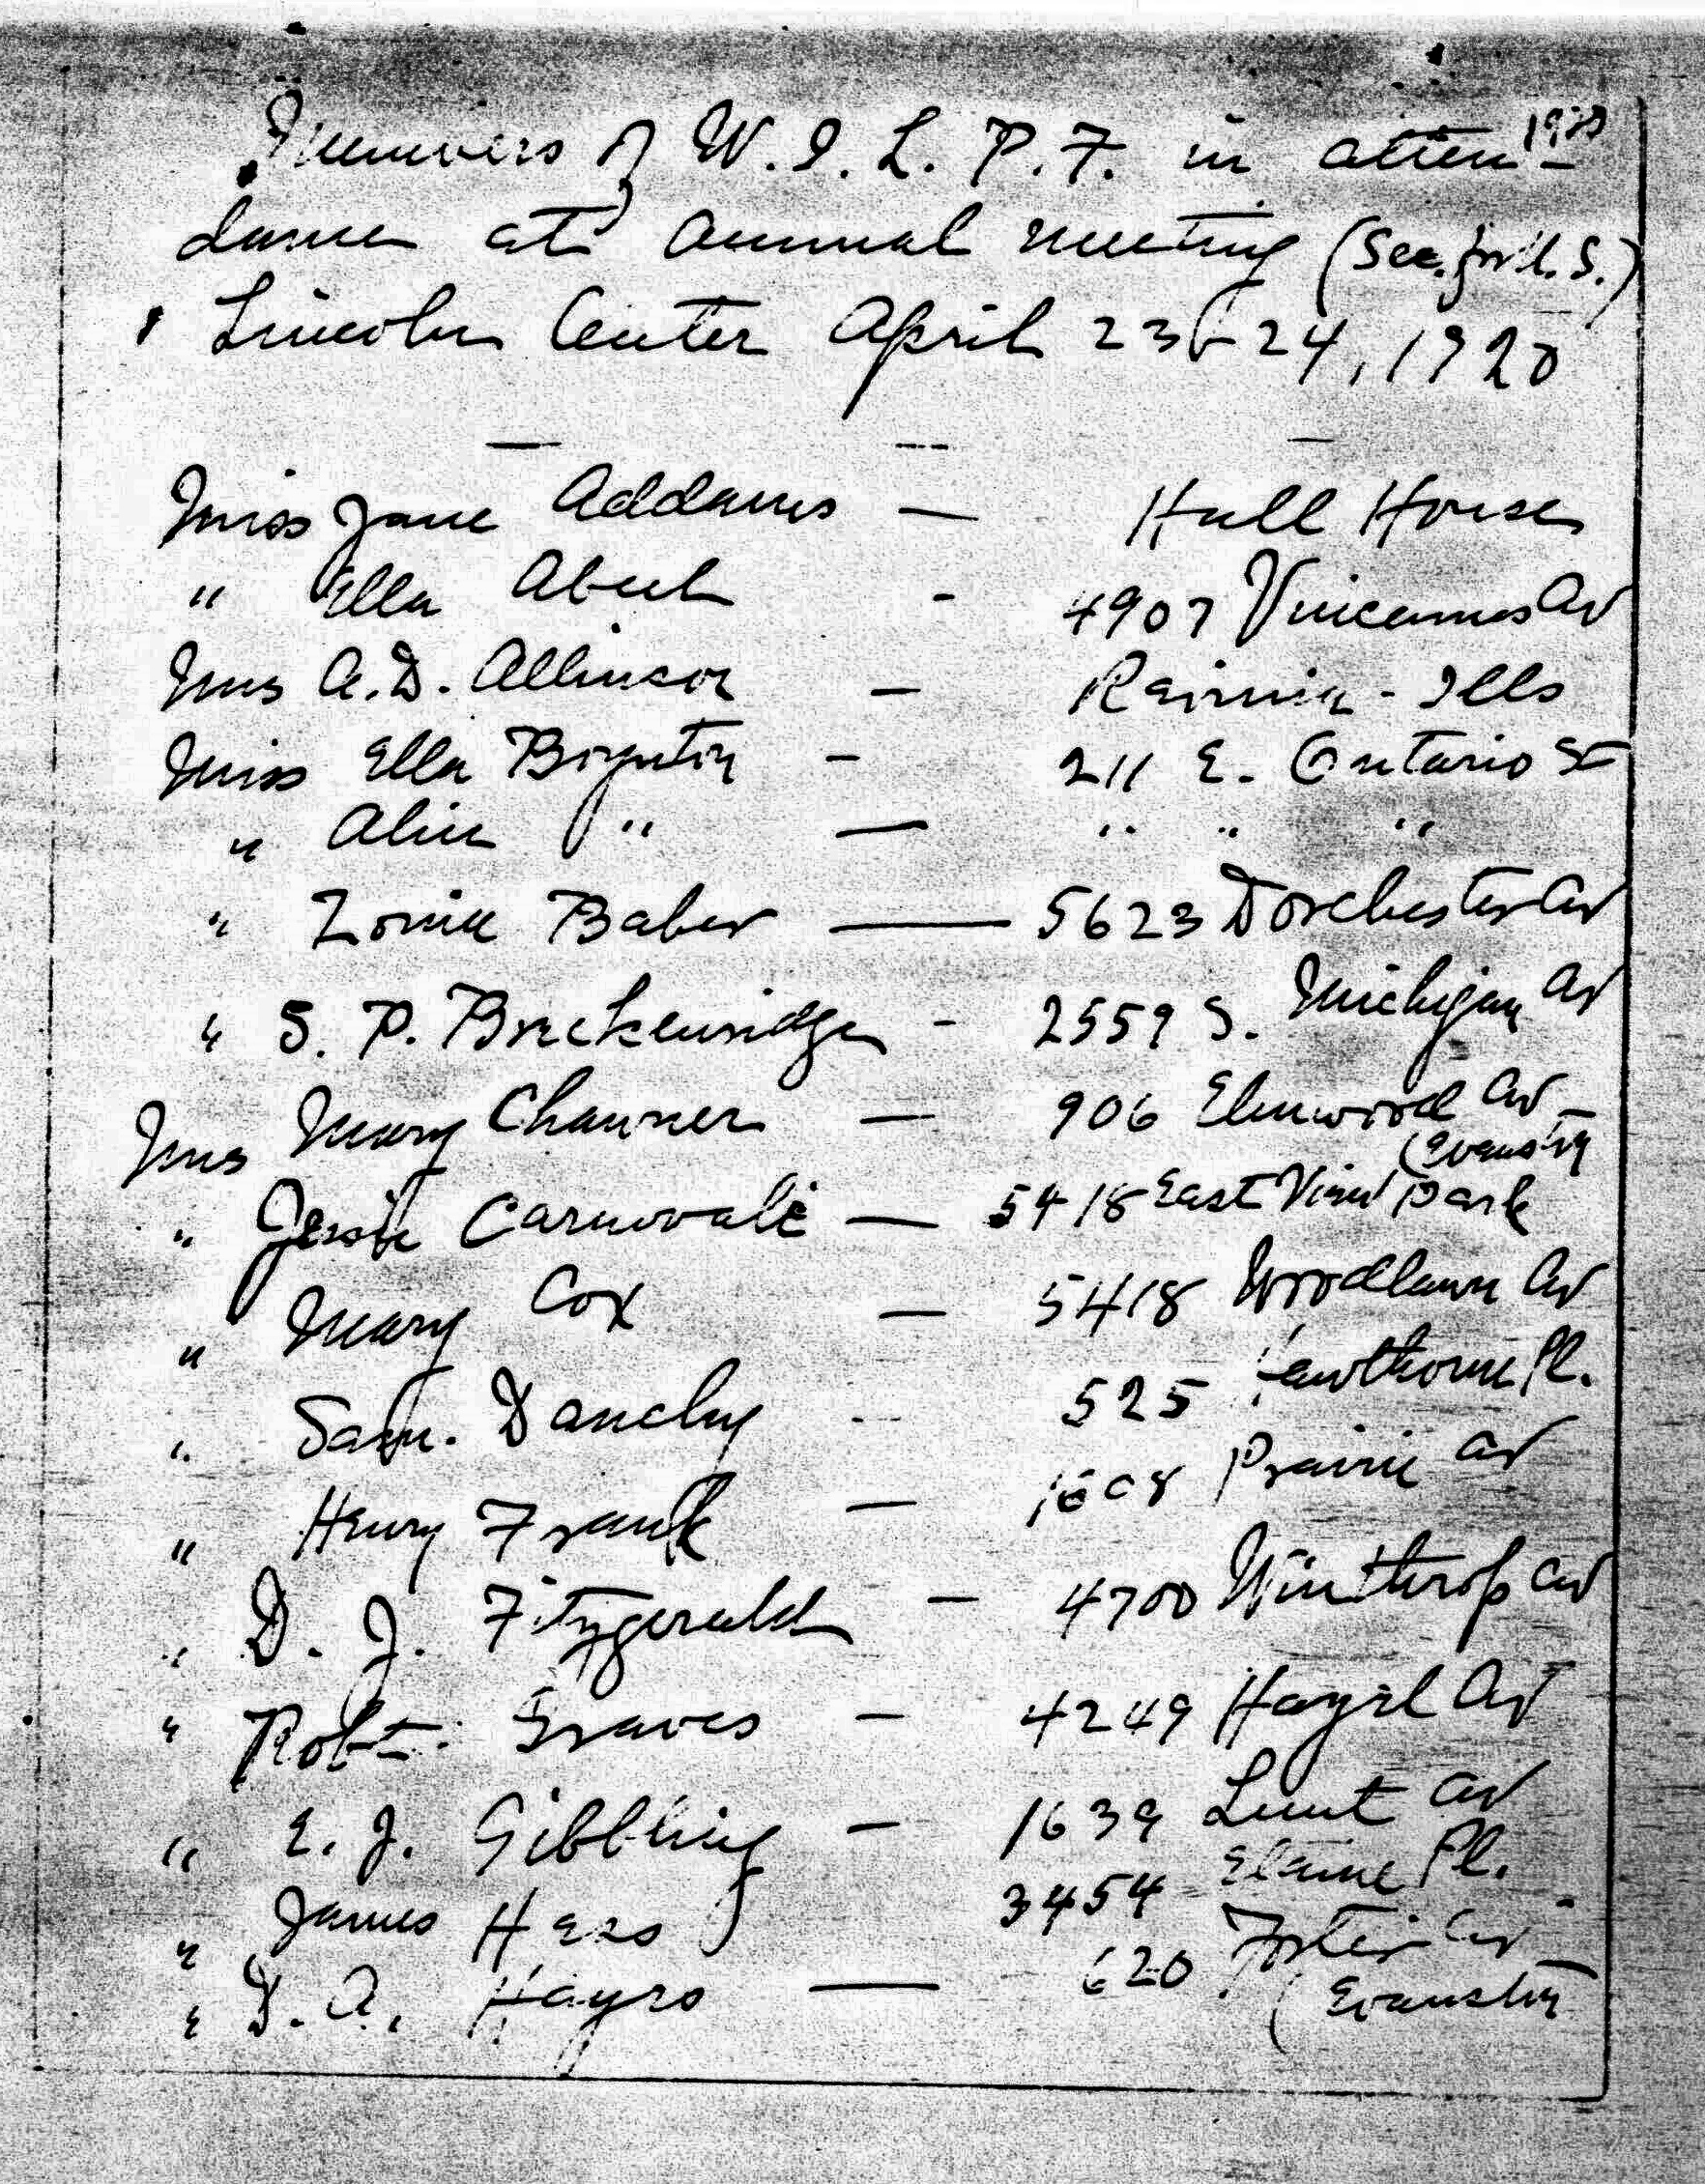 1920
Members of W. I. L. P. F. in atten-
dance at annual meeting (Sec. for U. S.)
Lincoln Center April 23 & 24, 1920
Miss Jane Addams — Hull House
" Ella Abeel - 4907 Vincennes Av
Mrs A. D. Allinson — Ravinia - Ills
Miss Ella Boynton - 211 E. Ontario St
" Alice " — " " "
" Zonia Baber — 5623 Dorchester Av
" S. P. Breckenridge - 2559 S. Michigan Av
Mrs Mary Chawner — 906 Elmwood Av -
(Evanston
" Jessie Carnovale — 5418 East View Park
" Mary Cox — 5418 Woodlawn Av
" Sam. Danchy - 525 Hawthorne Pl.
" Henry Frank — 1608 Prairie Av
" D. J. Fitzgerald — 4700 Winthrop Av
" Robt. Graves — 4249 Hazel Av
" E. J. Gibbling — 1639 Lunt Av
" James Hess 3454 Elaine Pl.
" D. A. Hayes — 620 Foster Av -
(Evanston